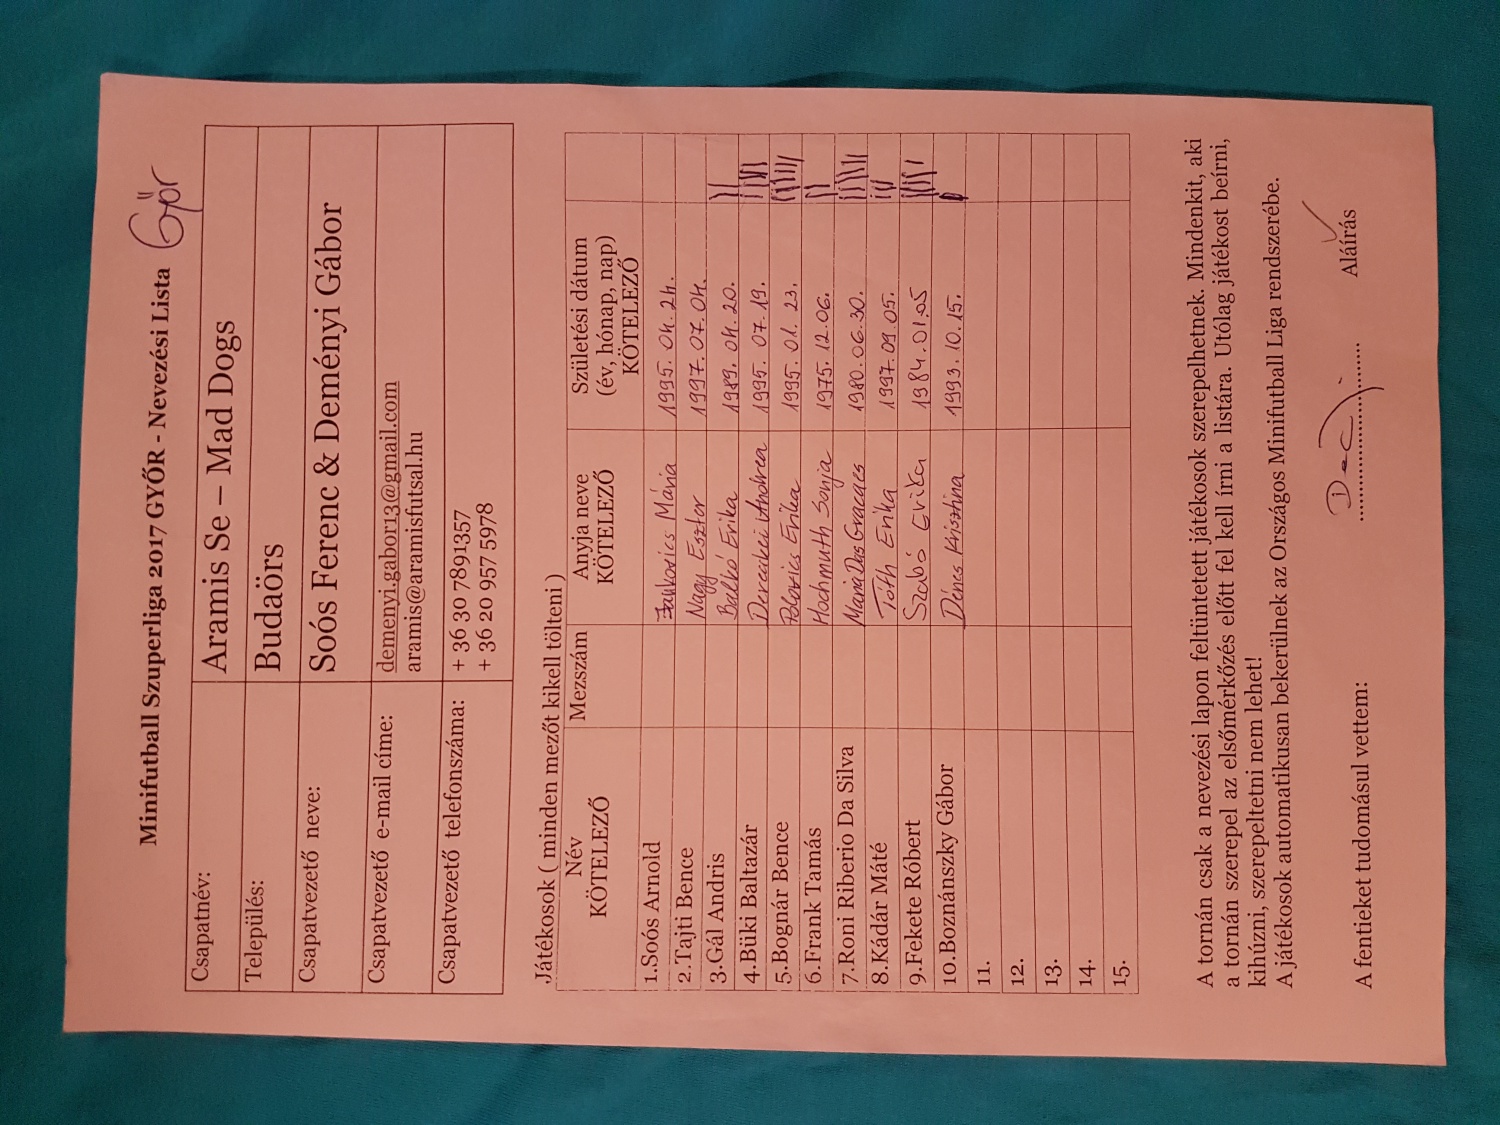 Minifutball Szuperliga 2017 GYŐR - Nevezési Lista Győr
Csapatnév: Aramis Se – Mad Dogs
Település: Budaörs
Csapatvezető neve: Soós Ferenc & Deményi Gábor
Csapatvezető e-mail címe: demenyi.gabor13@gmail.com
aramis@aramisfutsal.hu
Csapatvezető telefonszáma: + 36 30 7891357
+ 36 20 957 5978
Játékosok ( minden mezőt kikell tölteni )
Név KÖTELEZŐ Mezszám Anyja neve KÖTELEZŐ Születési dátum (év, hónap, nap) KÖTELEZŐ
1.Soós Arnold Jankovics Mária 1995. 04. 24.
2.Tajti Bence Nagy Eszter 1997. 07. 04.
3.Gál Andris Balkó Erika 1989. 04. 20.
4.Büki Baltazár Derecskei Andrea 1995. 07. 19.
5.Bognár Bence Erika 1995. 01. 23.
6.Frank Tamás Hochmuth Sonja 1975. 12. 06.
7.Roni Riberio Da Silva Maria Das Gracaes 1980. 06. 30.
8.Kádár Máté Tóth Erika 1997. 09. 05.
9.Fekete Róbert Szabó Evita 1984. 01. 05
10.Boznánszky Gábor Dénes Krisztina 1993. 10. 15.
11.
12.
13.
14.
15.
A tornán csak a nevezési lapon feltüntetett játékosok szerepelhetnek. Mindenkit, aki
a tornán szerepel az elsőmérkőzés előtt fel kell írni a listára. Utólag játékost beírni,
kihúzni, szerepeltetni nem lehet!
A játékosok automatikusan bekerülnek az Országos Minifutball Liga rendszerébe.
A fentieket tudomásul vettem: Aláírás